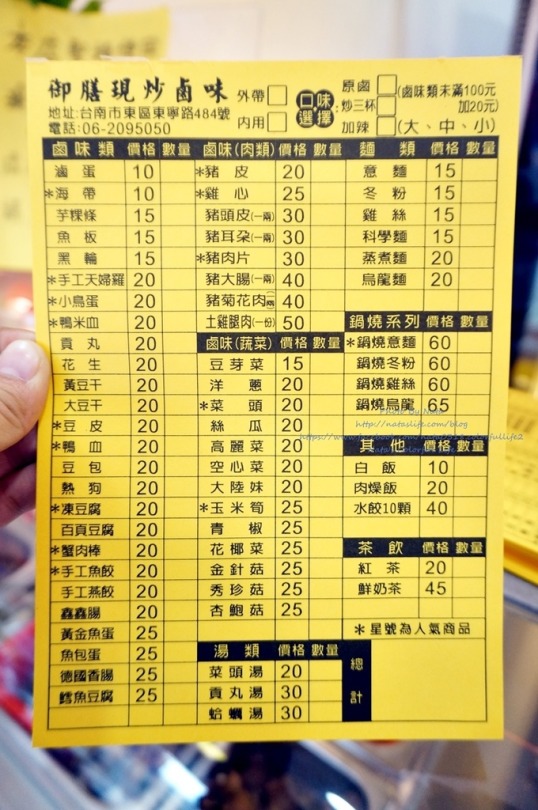 御膳現炒鹵味 外帶 口味選擇 原鹵 (鹵味類未滿100元
地址:台南市東區東寧路484號 炒三杯 加20元)
電話:06-2095050 內用 加辣 (大、中、小)
鹵味類 價格 數量
滷蛋 10
*海帶 10
芋粿條 15
魚板 15
黑輪 15
*手工天婦羅 20
*小鳥蛋 20
*鴨米血 20
貢丸 20
花生 20
黃豆干 20
大豆干 20
*豆皮 20
*鴨血 20
豆包 20
熱狗 20
*凍豆腐 20
百頁豆腐 20
*蟹肉棒 20
*手工魚餃 20
手工燕餃 20
鑫鑫腸 20
黃金魚蛋 25
魚包蛋 25
德國香腸 25
鱈魚豆腐 25
鹵味(肉類) 價格 數量
*豬皮 20
*雞心 25
豬頭皮(一兩) 30
豬耳朵(一兩) 30
*豬肉片 30
豬大腸(一兩) 40
豬菊花肉 40
土雞腿肉(一份) 50
鹵味(蔬菜) 價格 數量
豆芽菜 15
洋蔥 20
*菜頭 20
絲瓜 20
高麗菜 20
空心菜 20
大陸妹 20
*玉米筍 25
青椒 25
花椰菜 25
金針菇 25
秀珍菇 25
杏鮑菇 25
湯類 價格 數量
菜頭湯 20
貢丸湯 30
蛤蠣湯 30
麵類 價格 數量
意麵 15
冬粉 15
雞絲 15
科學麵 15
蒸煮麵 20
烏龍麵 20
鍋燒系列 價格 數量
*鍋燒意麵 60
鍋燒冬粉 60
鍋燒雞絲 60
鍋燒烏龍 65
其他 價格 數量
白飯 10
肉燥飯 20
水餃10顆 40
茶飲 價格 數量
紅茶 20
鮮奶茶 45
*星號為人氣商品
總計
http://nataslife.com/blog